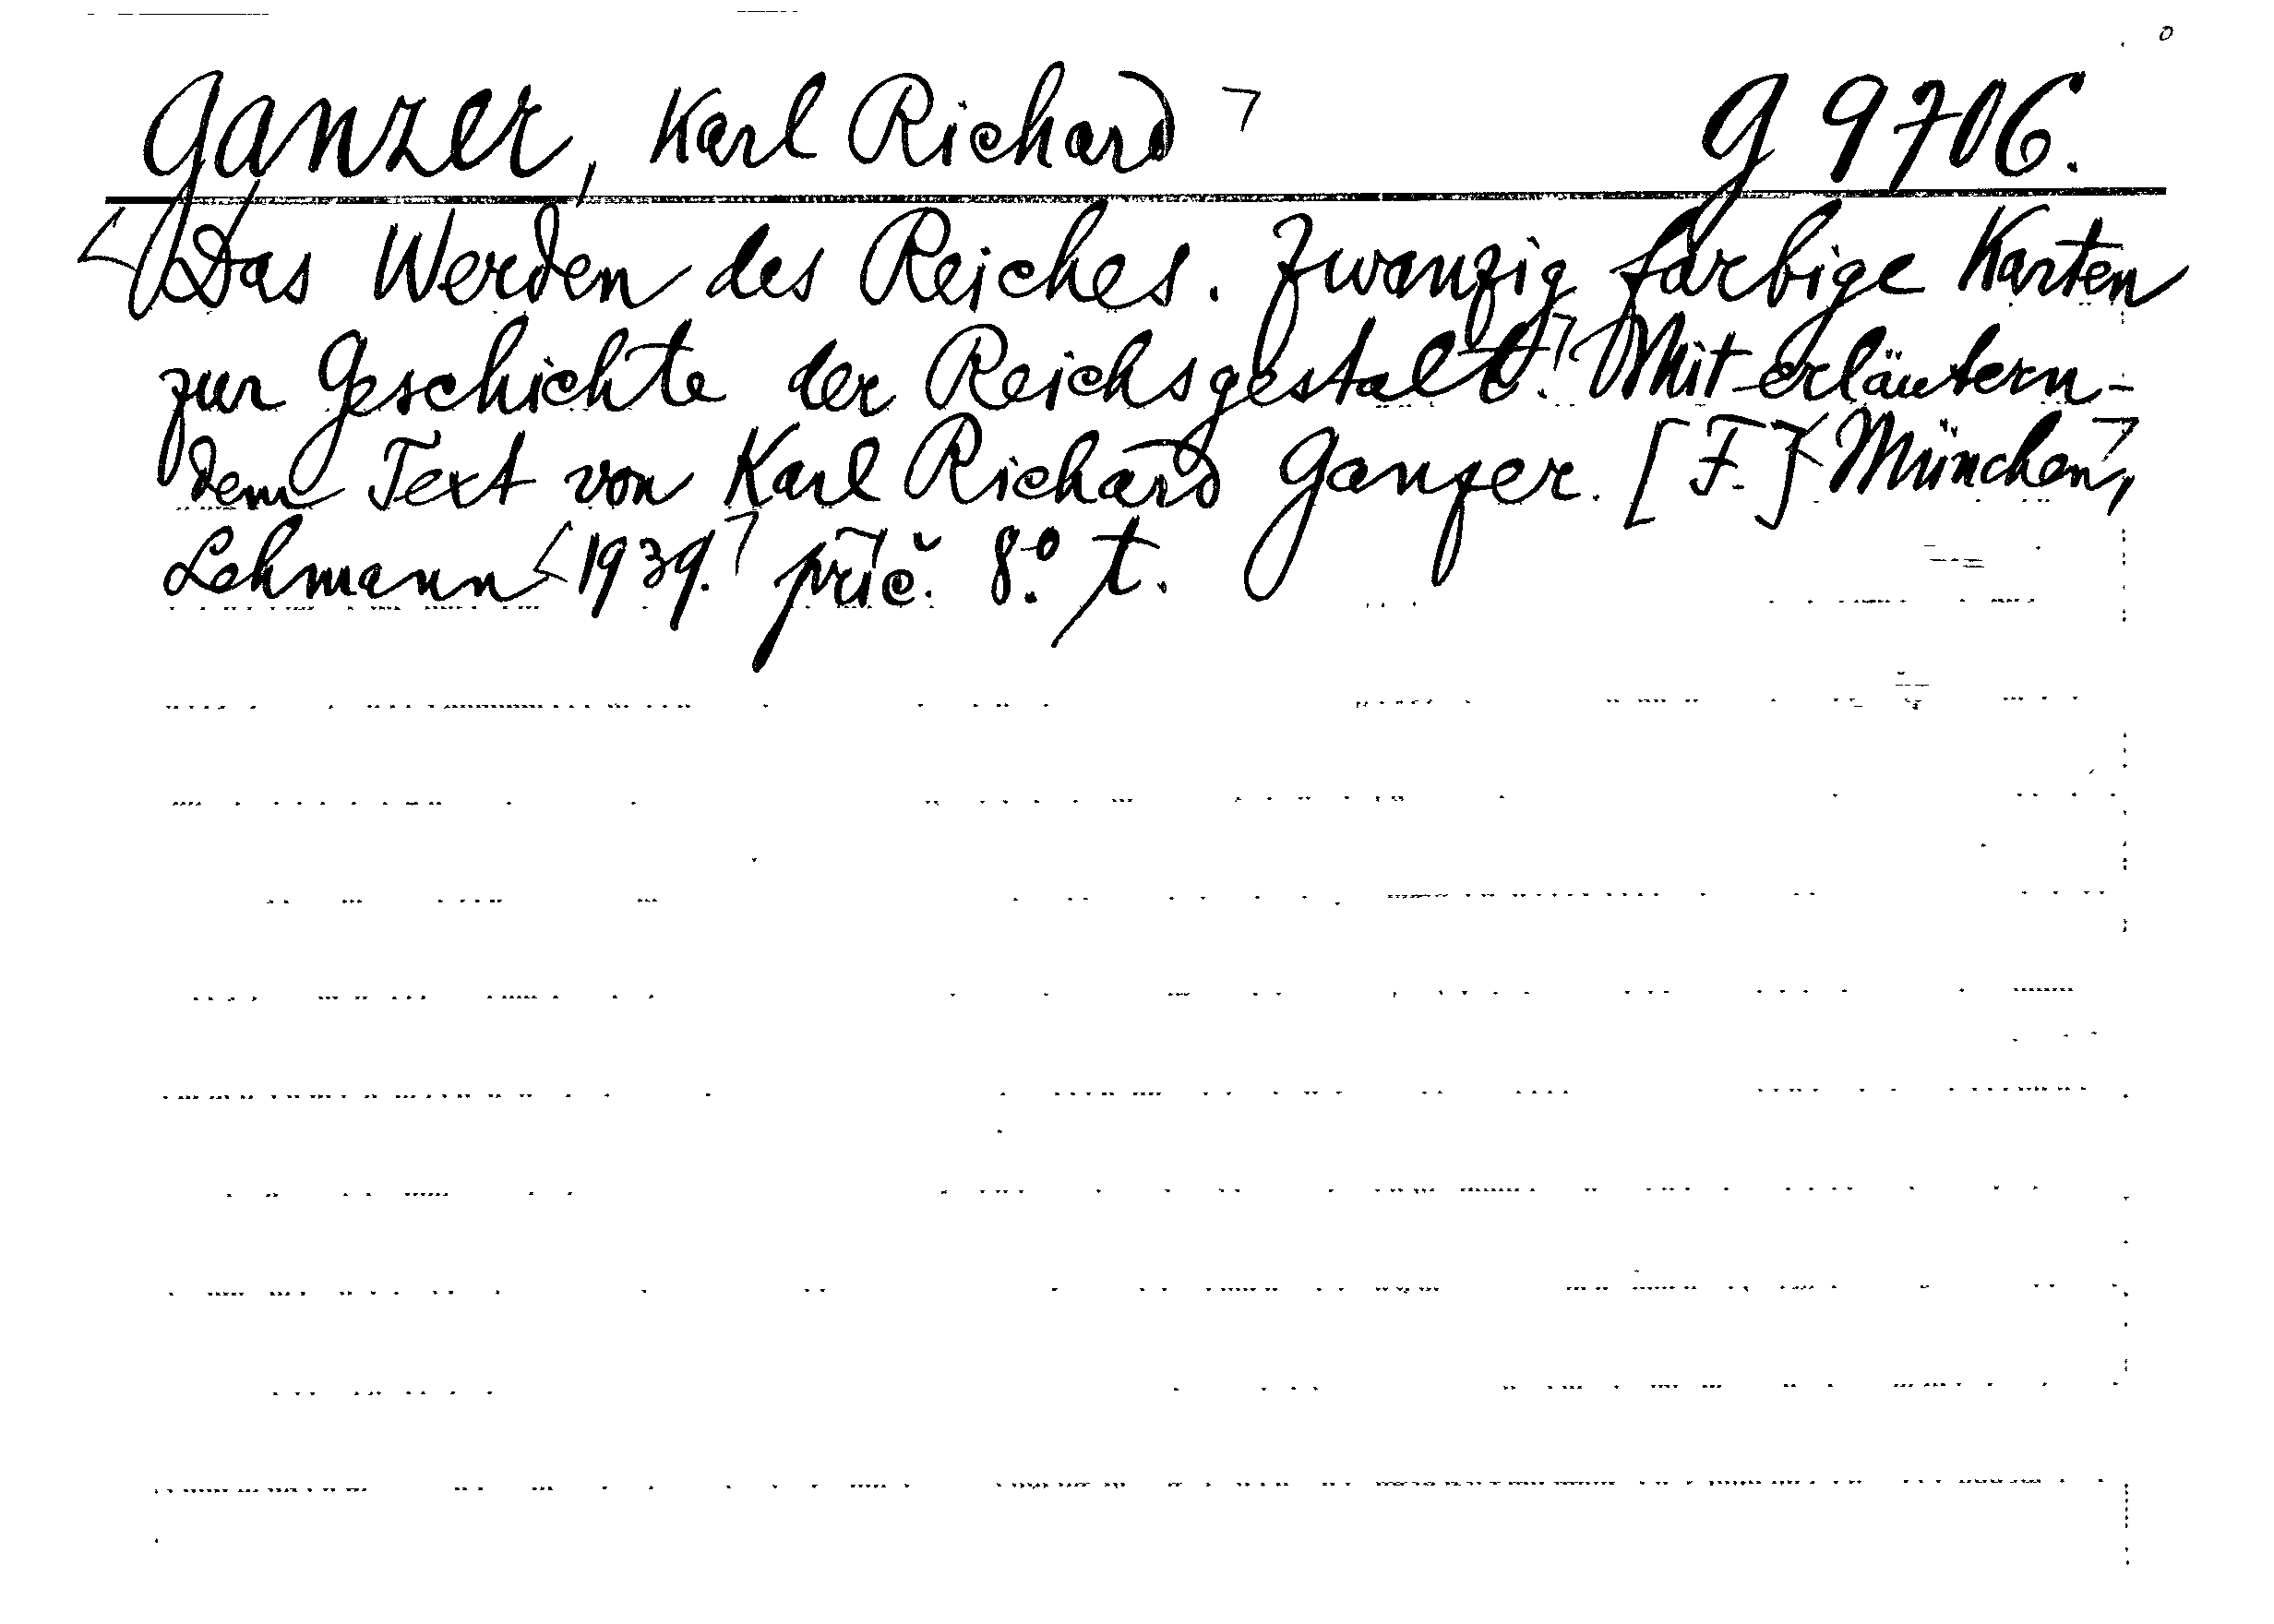 Ganzer, Karl Richard G 9706.
Das Werden des Reiches. Zwanzig farbige Karten
zur Geschichte der Reichsgestalt. Mit erläutern-
dem Text von Karl Richard Ganzer. [F.] München,
Lehmann 1939. prič. 8.° t.